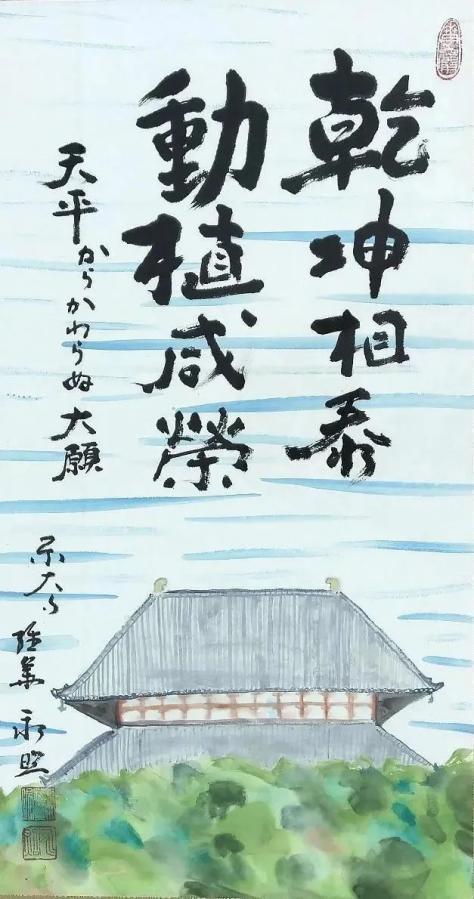 乾坤相泰
動植咸榮
天平からかわらぬ大願
東大寺 永照